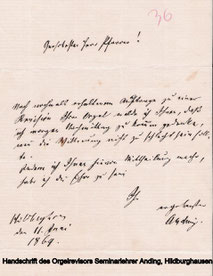 36
Geehrtester Herr Pfarrer!
Nach nochmals erhaltenem Auftrage zu einer
Revision Ihrer Orgel melde ich Ihnen, daß
ich morgen Nachmittag zu kommen gedenke,
wenn die Witterung nicht zu schlecht sein soll-
te.
Indem ich Ihnen hiervon Mittheilung mache,
habe ich die Ehre zu sein
Ihr
ergebenster
Anding.
Hildburghsn.
den 11. Juni
1869.
Handschrift des Orgelrevisors Seminarlehrer Anding, Hildburghausen